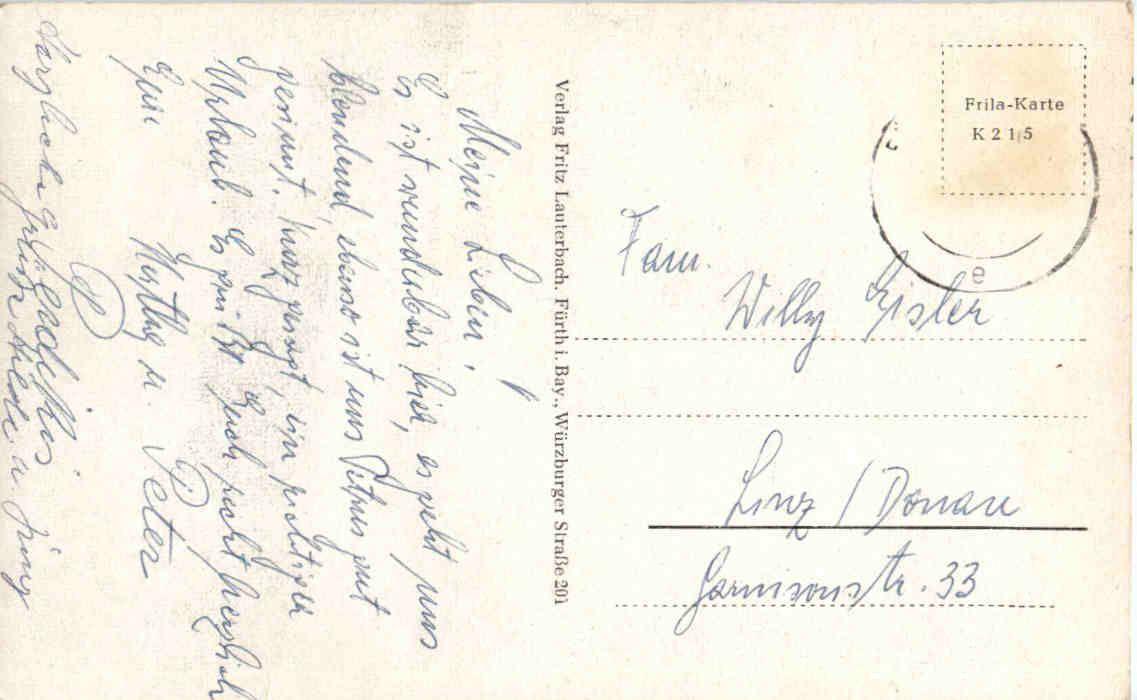 Meine Lieben!
Es ist wunderbar hier, es geht uns
blendend, ebenso ist uns Petrus gut
gesinnt. Kurz gesagt, ein richtiger
Urlaub. Es grüßt Euch recht herzlich
Eure
Hertha u. Peter
Herzliche Grüße
Verlag Fritz Lauterbach, Fürth i. Bay., Würzburger Straße 201
Frila-Karte
K 215
e
Fam.
Willy Eisler
Linz / Donau
Garnisonstr. 33